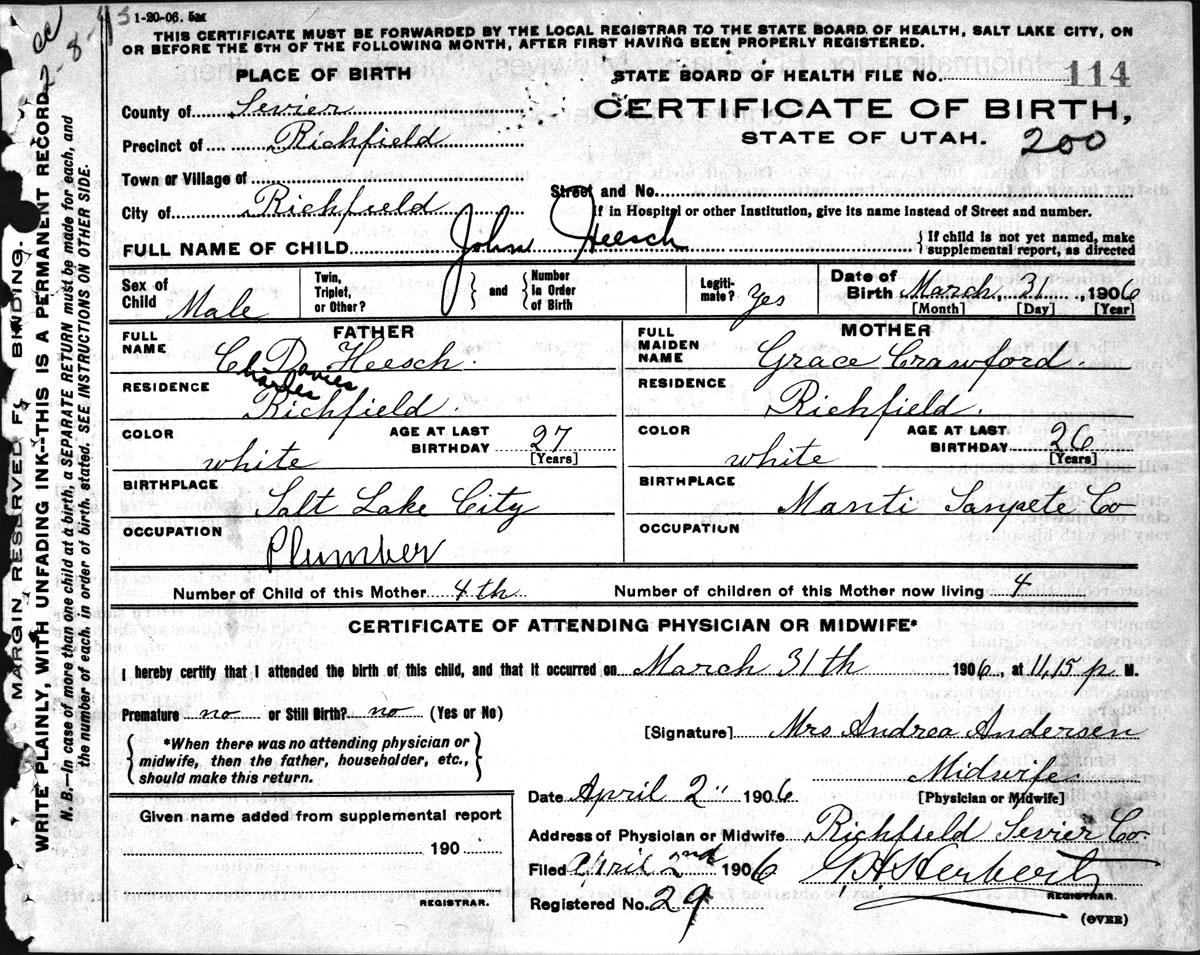 1-20-06. 5M
THIS CERTIFICATE MUST BE FORWARDED BY THE LOCAL REGISTRAR TO THE STATE BOARD OF HEALTH, SALT LAKE CITY, ON
OR BEFORE THE 5TH OF THE FOLLOWING MONTH, AFTER FIRST HAVING BEEN PROPERLY REGISTERED.
PLACE OF BIRTH
STATE BOARD OF HEALTH FILE No. 114
County of Sevier
CERTIFICATE OF BIRTH,
STATE OF UTAH.
200
Precinct of Richfield
Town or Village of
Street and No.
City of Richfield
If in Hospital or other Institution, give its name instead of Street and number.
FULL NAME OF CHILD John Heesch
{If child is not yet named, make
supplemental report, as directed
Sex of Child Male
Twin, Triplet, or Other?
and
Number in Order of Birth
Legiti-mate? Yes
Date of Birth March 31, 1906
[Month] [Day] [Year]
FATHER
FULL NAME C. Davies Heesch.
Charles
RESIDENCE
Richfield.
COLOR white
AGE AT LAST BIRTHDAY 27
[Years]
BIRTHPLACE
Salt Lake City
OCCUPATION
Plumber
MOTHER
FULL MAIDEN NAME Grace Crawford.
RESIDENCE
Richfield.
COLOR white
AGE AT LAST BIRTHDAY 26
[Years]
BIRTHPLACE
Manti Sanpete Co
OCCUPATION
Number of Child of this Mother 4th
Number of children of this Mother now living 4
CERTIFICATE OF ATTENDING PHYSICIAN OR MIDWIFE*
I hereby certify that I attended the birth of this child, and that it occurred on March 31th 1906, at 11,15 p M.
Premature no or Still Birth? no (Yes or No)
{*When there was no attending physician or
midwife, then the father, householder, etc.,
should make this return.}
[Signature] Mrs Andrea Andersen
Midwife
[Physician or Midwife]
Date April 2" 1906
Given name added from supplemental report
190
REGISTRAR.
Address of Physician or Midwife Richfield Sevier Co.
Filed April 2nd 1906
G.H. Herbert
REGISTRAR.
Registered No. 29
(OVER)
MARGIN RESERVED FOR BINDING.
WRITE PLAINLY, WITH UNFADING INK--THIS IS A PERMANENT RECORD.
N. B.—In case of more than one child at a birth, a SEPARATE RETURN must be made for each, and
the number of each, in order of birth, stated. SEE INSTRUCTIONS ON OTHER SIDE.